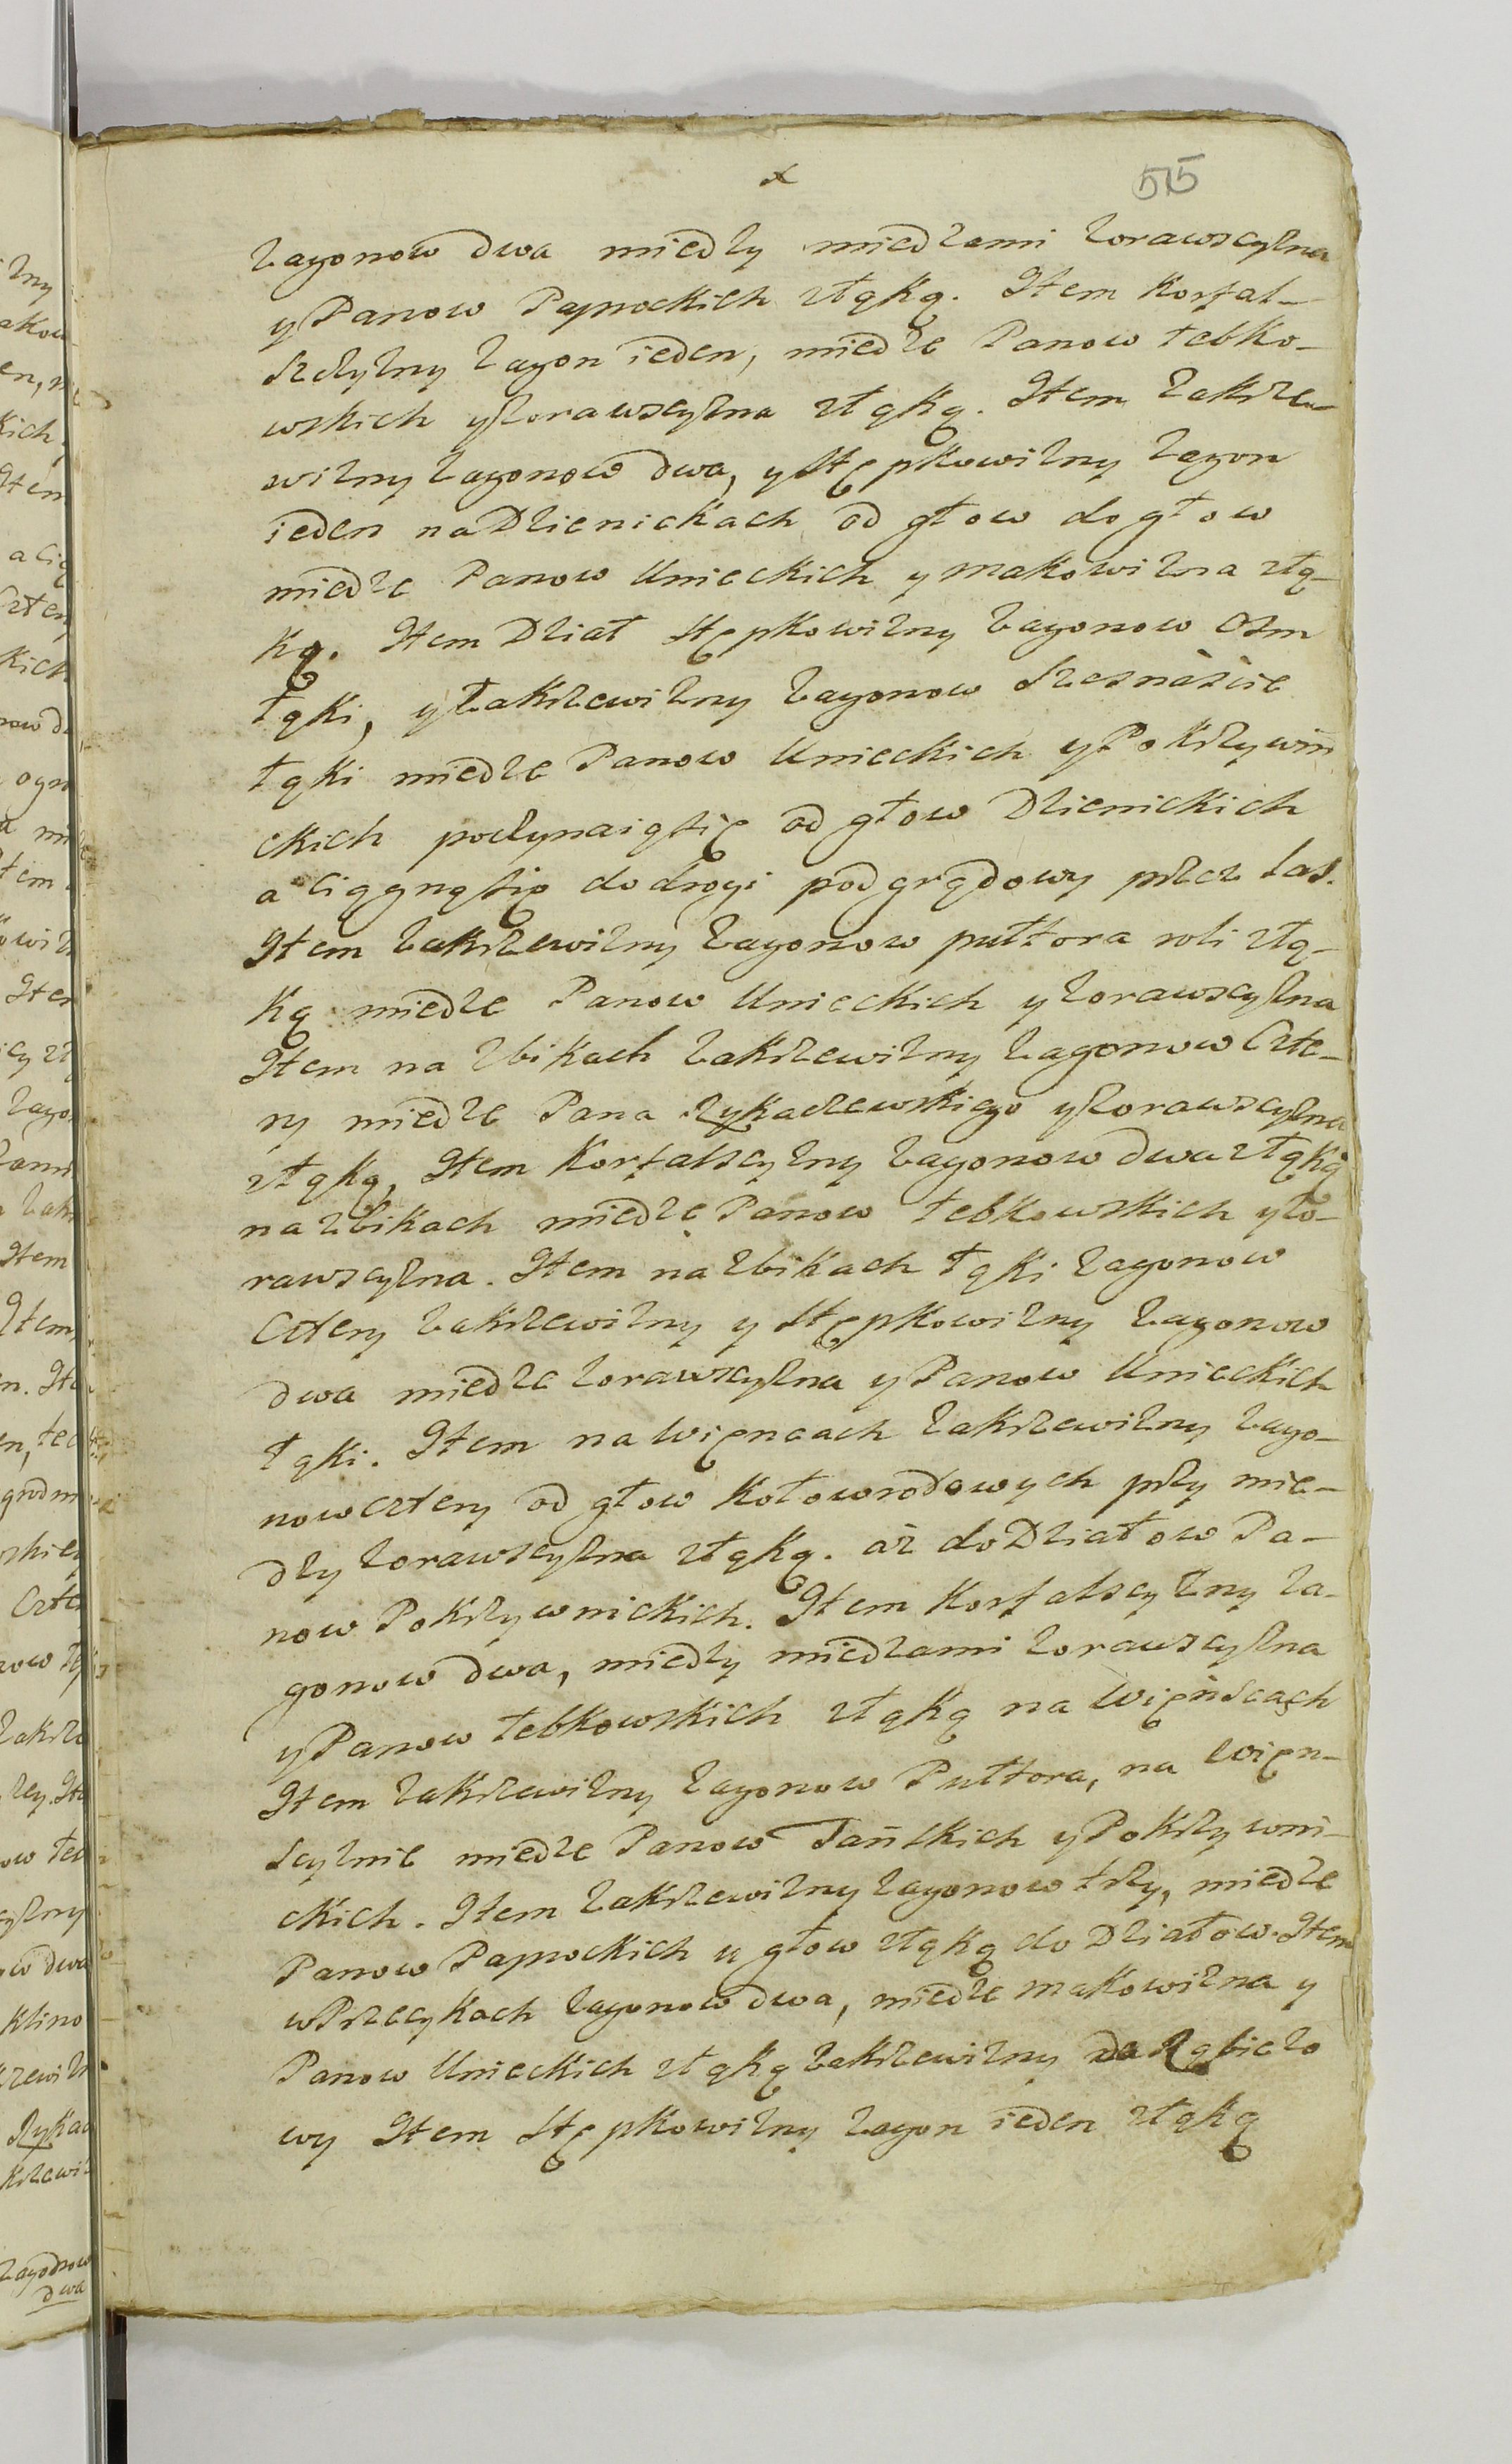 x 515
Zagonow dwa miedzy miedzami Zorawscyzna
y Panow Paprockich złąką. Item Korfal-
szczyzny Zagon ieden, miedze Panow Łebko-
wskich y Zorawscyzna złąką. Item Zakrze-
wizny Zagonow dwa, y Stępkowizny Zagon
ieden na Dzienickach od głow do głow
miedze Panow Unieckich y Makowizna złą-
ką. Item Dział Stępkowizny Zagonow Osm
łąki, y Zakrzewizny Zagonow Szesnaście
łąki miedze Panow Unieckich y Pokrzywin
ckich poczynaiąsię od głow Dzienickich
a Ciągnąsię do drogi pod grądowy przez las.
Item Zakrzewizny Zagonow pułtora roli złą-
ką miedze Panow Unieckich y Zorawscyzna
Item na Zbikach Zakrzewizny Zagonow Czte-
ry miedze Pana Rykaczewskiego y Zorawscyzna
złąką, Item Korfalscyzny Zagonow dwa złąką
na Zbikach miedze Panow Łebkowskich y Zo-
rawscyzna. Item na Zbikach łąki Zagonow
Cztery Zakrzewizny y Stępkowizny Zagonow
dwa miedze Zorawscyzna y Panow Unieckich
łąki. Item na Więncach Zakrzewizny Zago-
now cztery od głow Kołowrodowych przy mie-
dzy Zorawscyzna złąką. aż do Działow Pa-
now Pokrzywnickich. Item Korfalscyzny Za-
gonow dwa, miedzy miedzami Zorawscyzna
y Panow Łebkowskich złąką na Więńscach
Item Zakrzewizny Zagonow Pułtora, na Więn-
scyznie miedze Panow Tańskich y Pokrzywni-
ckich. Item Zakrzewizny Zagonow trzy, miedze
Panow Paprockich u głow złąką do Działow. Item
w Przecykach Zagonow dwa, miedze Makowizna y
Panow Unieckich złąką Zakrzewizny
wy Item Stępkowizny Zagon ieden złąką